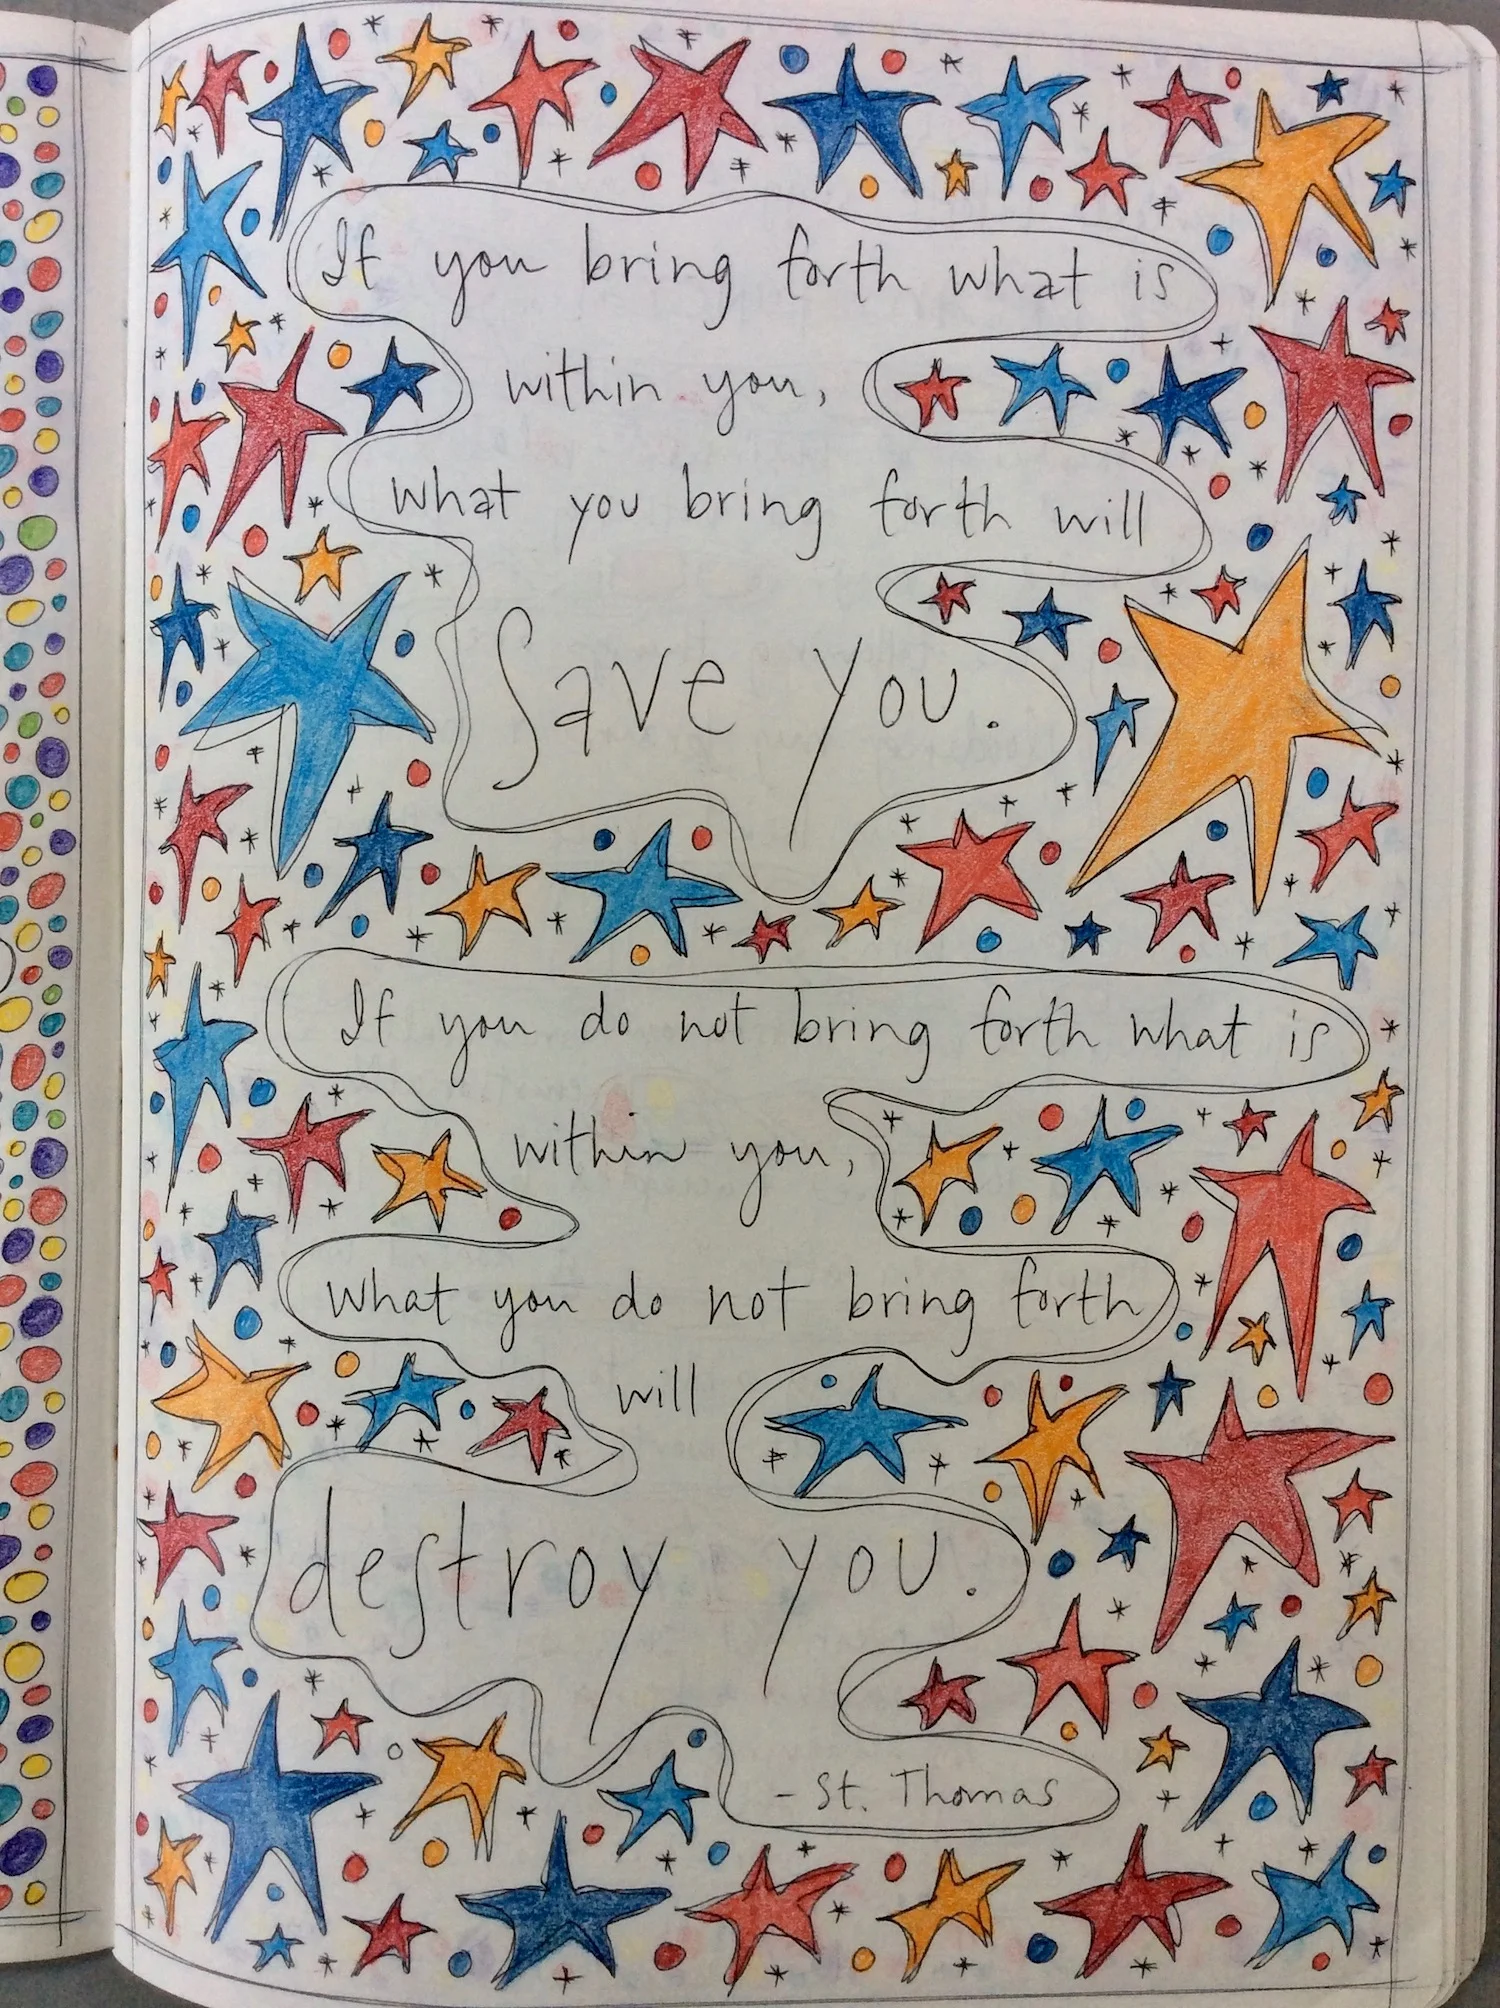 If you bring forth what is
within you,
what you bring forth will
Save you.
If you do not bring forth what is
within you,
what you do not bring forth
will
destroy you.
- St. Thomas